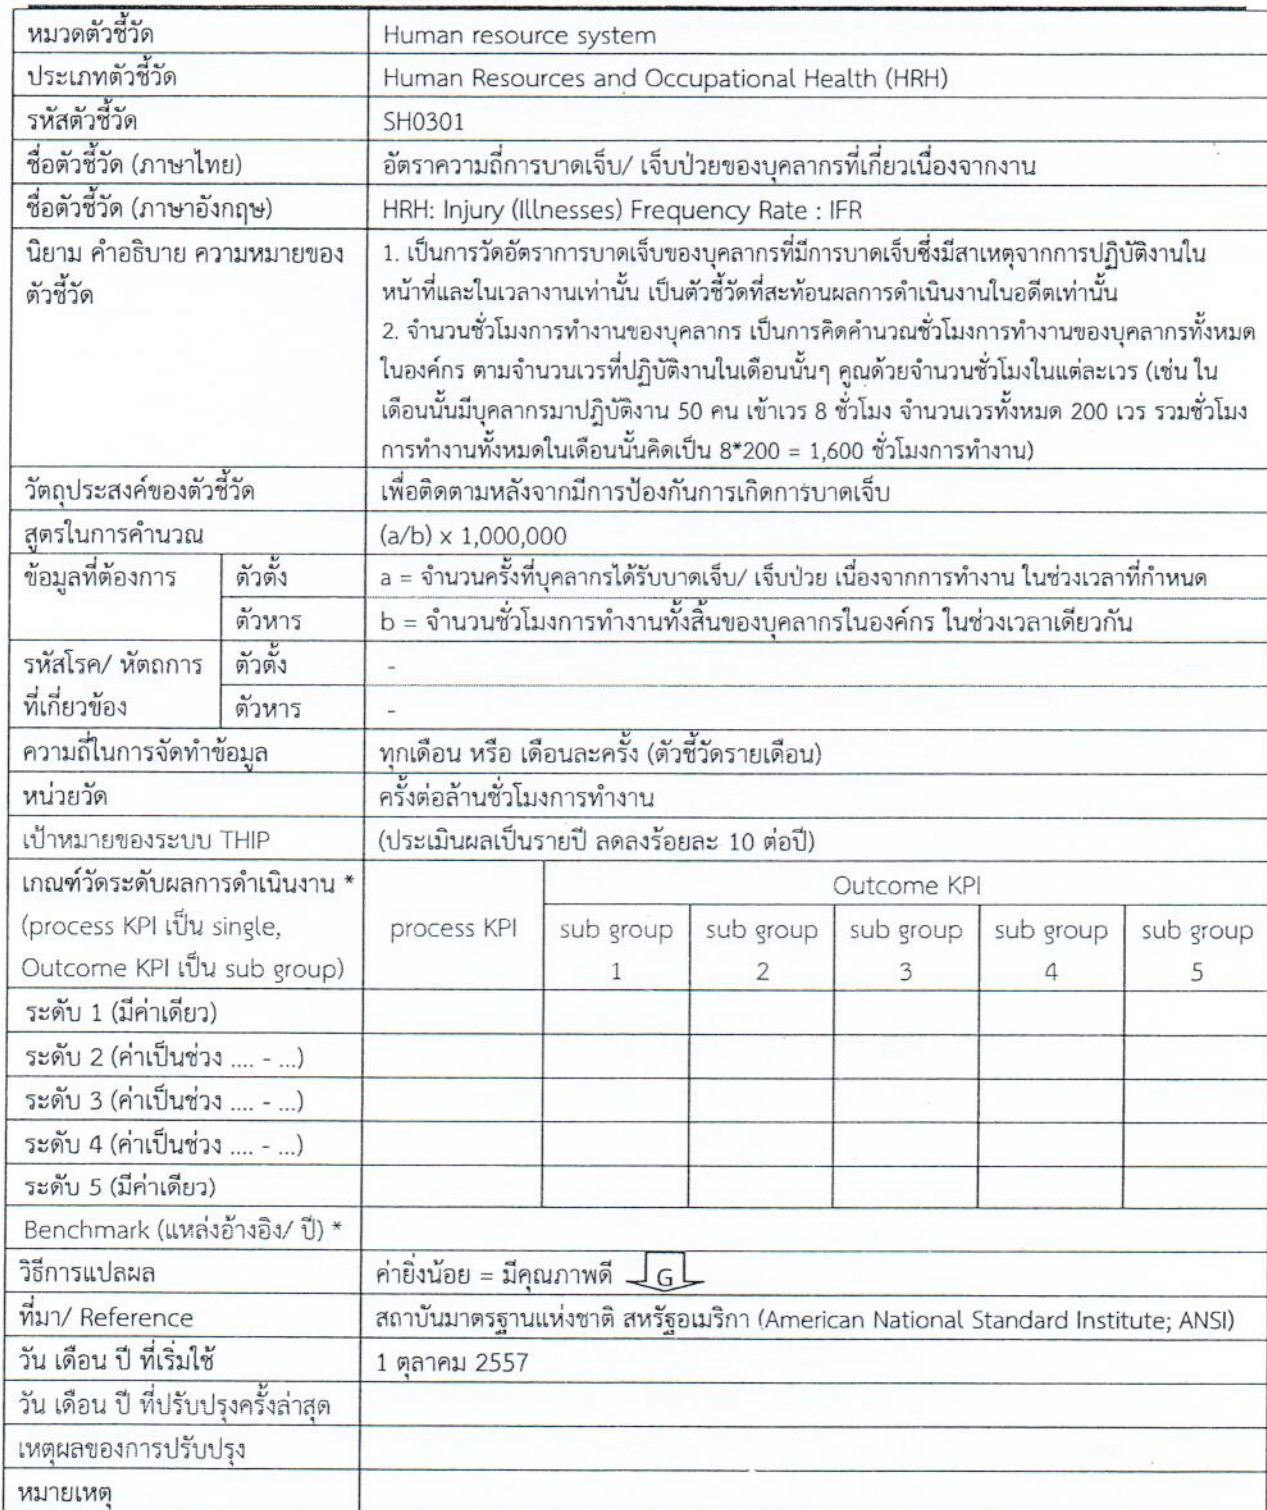 หมวดตัวชี้วัด Human resource system
ประเภทตัวชี้วัด Human Resources and Occupational Health (HRH)
รหัสตัวชี้วัด SH0301
ชื่อตัวชี้วัด (ภาษาไทย) อัตราความถี่การบาดเจ็บ/ เจ็บป่วยของบุคลากรที่เกี่ยวเนื่องจากงาน
ชื่อตัวชี้วัด (ภาษาอังกฤษ) HRH: Injury (Illnesses) Frequency Rate : IFR
นิยาม คำอธิบาย ความหมายของ
ตัวชี้วัด
1. เป็นการวัดอัตราการบาดเจ็บของบุคลากรที่มีการบาดเจ็บซึ่งมีสาเหตุจากการปฏิบัติงานใน
หน้าที่และในเวลางานเท่านั้น เป็นตัวชี้วัดที่สะท้อนผลการดำเนินงานในอดีตเท่านั้น
2. จำนวนชั่วโมงการทำงานของบุคลากร เป็นการคิดคำนวณชั่วโมงการทำงานของบุคลากรทั้งหมด
ในองค์กร ตามจำนวนเวรที่ปฏิบัติงานในเดือนนั้นๆ คูณด้วยจำนวนชั่วโมงในแต่ละเวร (เช่น ใน
เดือนนั้นมีบุคลากรมาปฏิบัติงาน 50 คน เข้าเวร 8 ชั่วโมง จำนวนเวรทั้งหมด 200 เวร รวมชั่วโมง
การทำงานทั้งหมดในเดือนนั้นคิดเป็น 8*200 = 1,600 ชั่วโมงการทำงาน)
วัตถุประสงค์ของตัวชี้วัด เพื่อติดตามหลังจากมีการป้องกันการเกิดการบาดเจ็บ
สูตรในการคำนวณ (a/b) x 1,000,000
ข้อมูลที่ต้องการ ตัวตั้ง a = จำนวนครั้งที่บุคลากรได้รับบาดเจ็บ/ เจ็บป่วย เนื่องจากการทำงาน ในช่วงเวลาที่กำหนด
ตัวหาร b = จำนวนชั่วโมงการทำงานทั้งสิ้นของบุคลากรในองค์กร ในช่วงเวลาเดียวกัน
รหัสโรค/ หัตถการ ตัวตั้ง -
ที่เกี่ยวข้อง ตัวหาร -
ความถี่ในการจัดทำข้อมูล ทุกเดือน หรือ เดือนละครั้ง (ตัวชี้วัดรายเดือน)
หน่วยวัด ครั้งต่อล้านชั่วโมงการทำงาน
เป้าหมายของระบบ THIP (ประเมินผลเป็นรายปี ลดลงร้อยละ 10 ต่อปี)
เกณฑ์วัดระดับผลการดำเนินงาน *
(process KPI เป็น single,
Outcome KPI เป็น sub group)
process KPI
Outcome KPI
sub group sub group sub group sub group sub group
1 2 3 4 5
ระดับ 1 (มีค่าเดียว)
ระดับ 2 (ค่าเป็นช่วง .... - ...)
ระดับ 3 (ค่าเป็นช่วง .... - ...)
ระดับ 4 (ค่าเป็นช่วง .... - ...)
ระดับ 5 (มีค่าเดียว)
Benchmark (แหล่งอ้างอิง/ ปี) *
วิธีการแปลผล ค่ายิ่งน้อย = มีคุณภาพดี G
ที่มา/ Reference สถาบันมาตรฐานแห่งชาติ สหรัฐอเมริกา (American National Standard Institute; ANSI)
วัน เดือน ปี ที่เริ่มใช้ 1 ตุลาคม 2557
วัน เดือน ปี ที่ปรับปรุงครั้งล่าสุด
เหตุผลของการปรับปรุง
หมายเหตุ